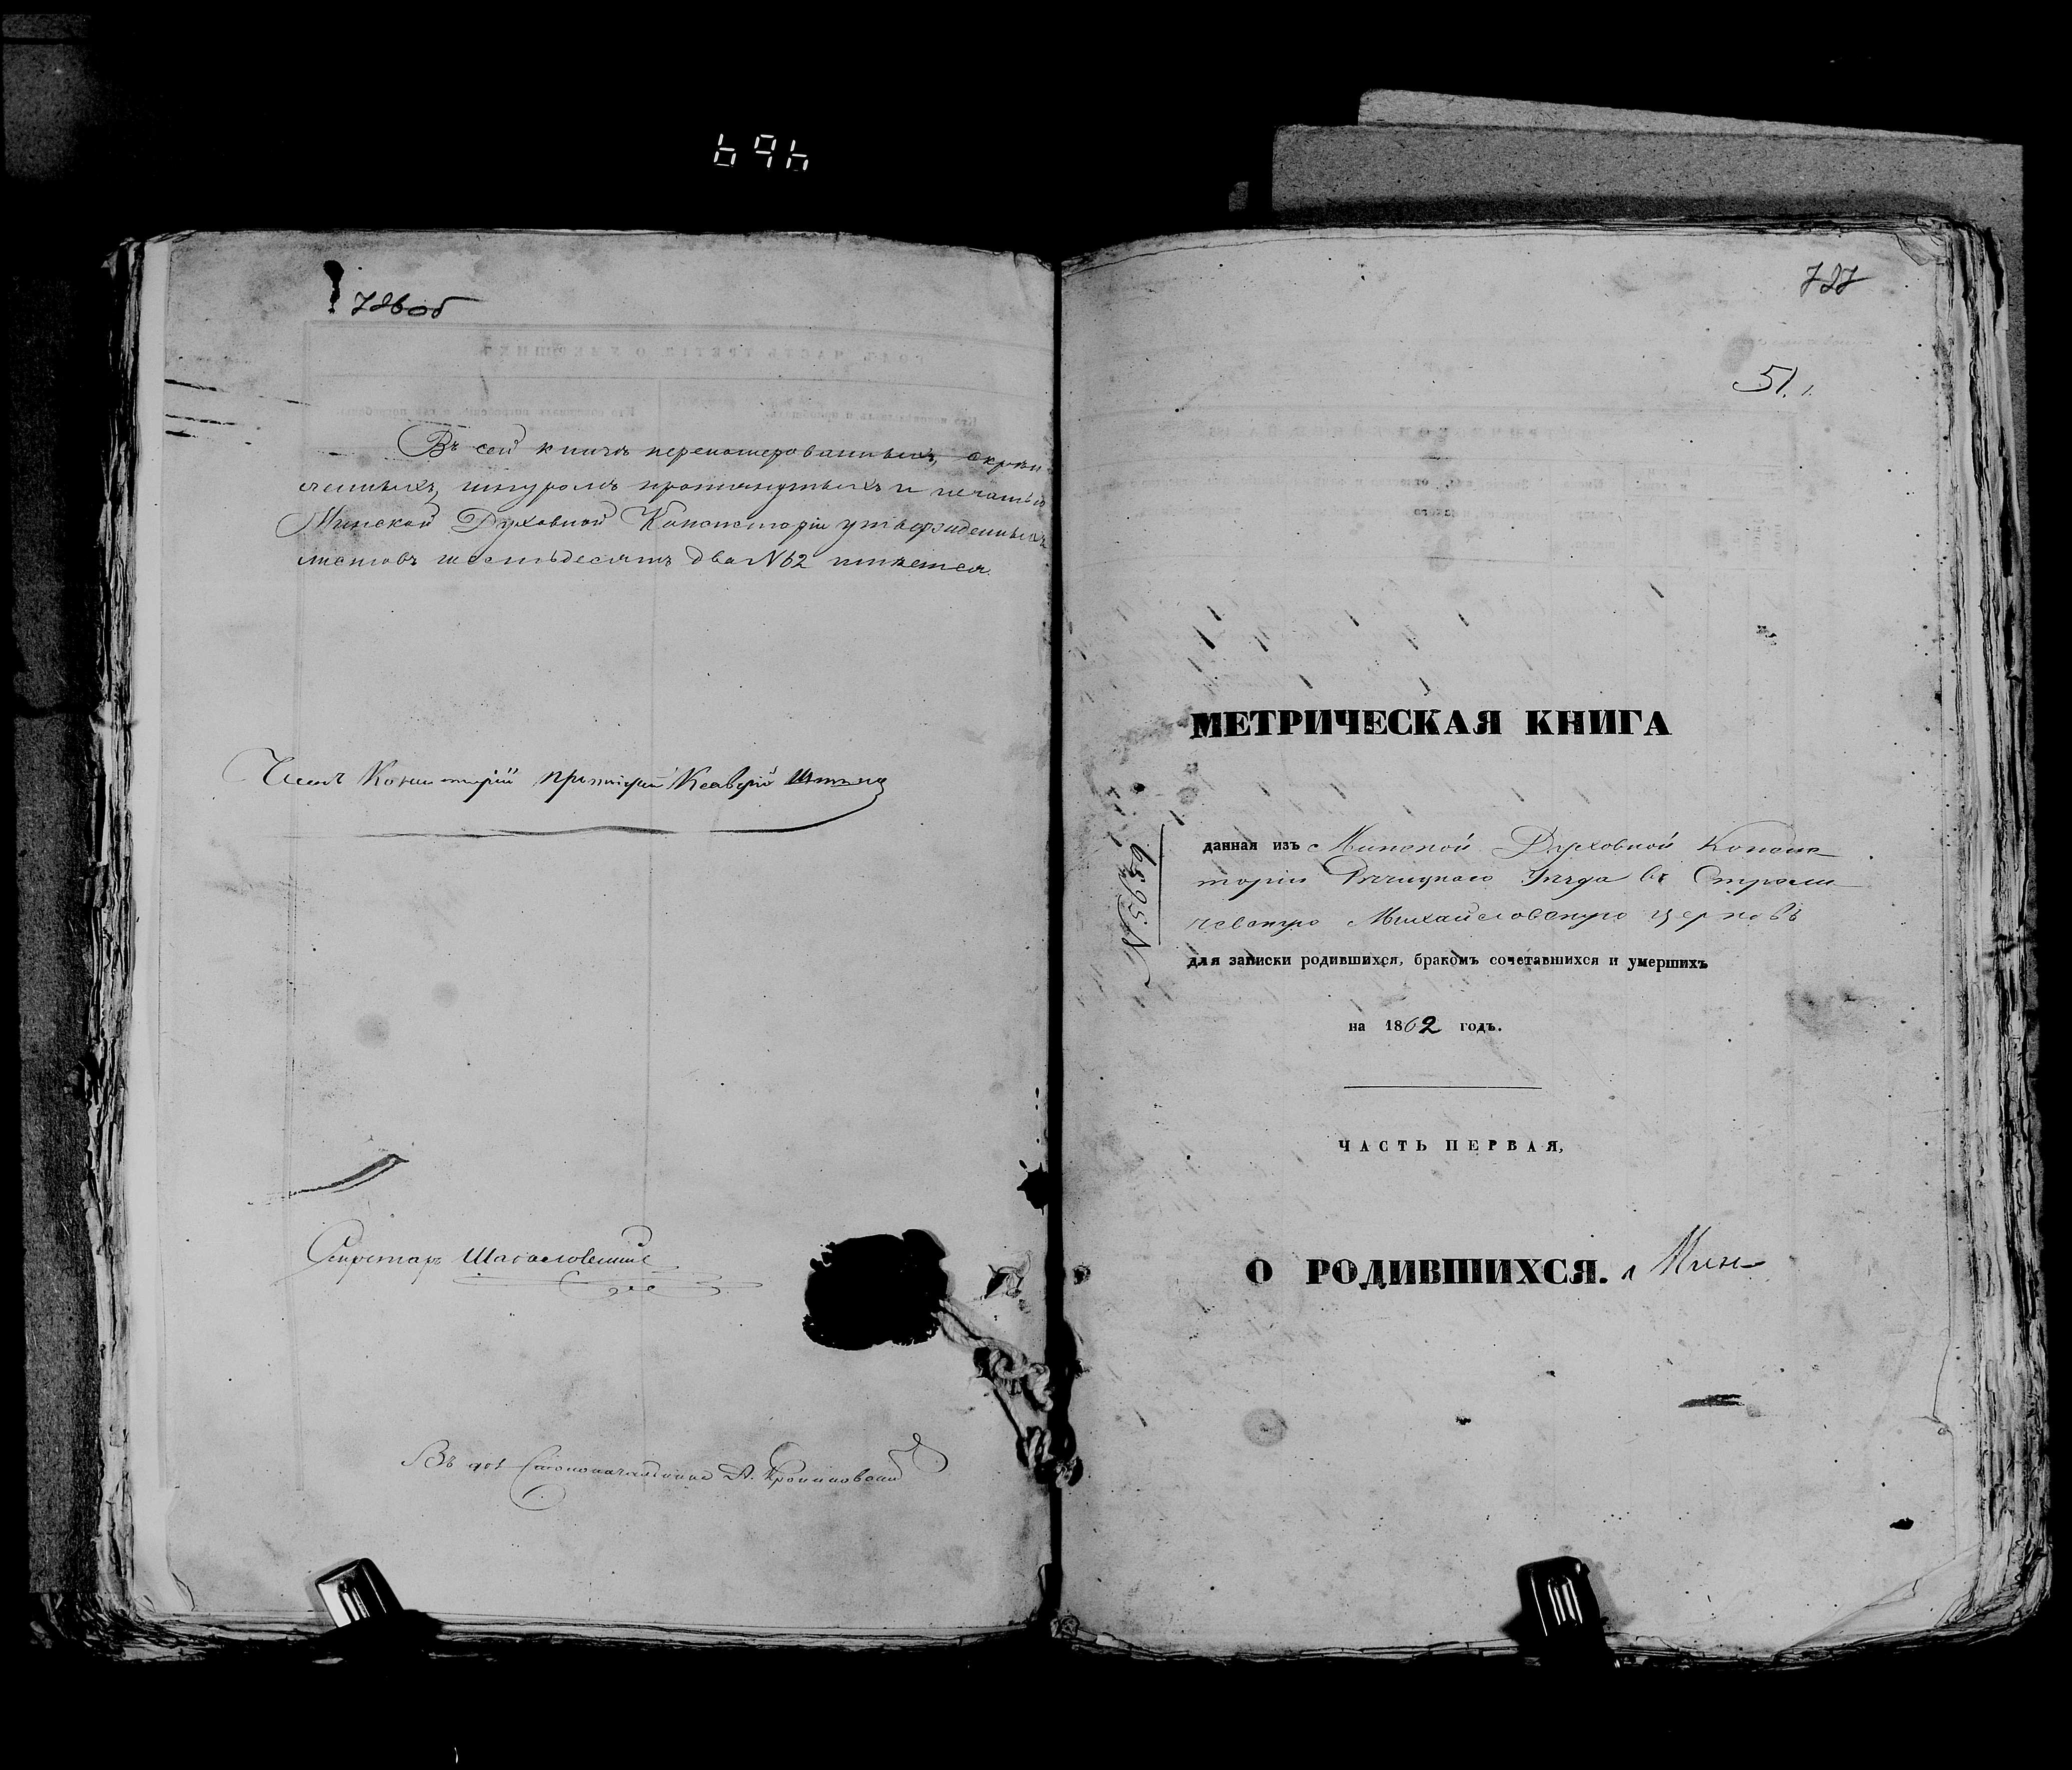 786об
Въ сей книгѣ перенумерованныхъ, скрѣп
ленныхъ, шнуромъ протянутыхъ и печатью
Минской Духовной Консисторіи утвержденныхъ
листовъ шестьдесятъ два №62 имѣется.
Членъ Консисторіи
Секретарь
Въ дол Столоначальника А.
787
51.
МЕТРИЧЕСКАЯ КНИГА
данная изъ Минской Духовной Консис
торіи Рѣчицкаго Уѣзда въ
Михайловскую церковь
для записки родившихся, бракомъ сочетавшихся и умершихъ
на 1862 годъ.
ЧАСТЬ ПЕРВАЯ,
О РОДИВШИХСЯ.